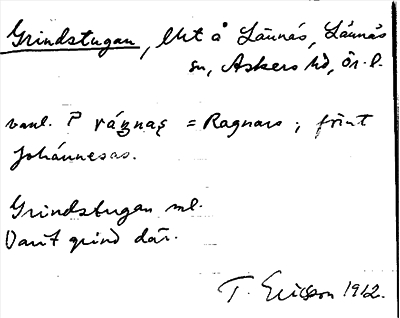 Grindstugan, lht å Lännäs, Lännäs
sn, Askers hd, Ör. l.
vanl. P rágnas = Ragnars; förut
Johánnesas.
Grindstugan ml.
Varit grind där.
T. Ericsson 1912.